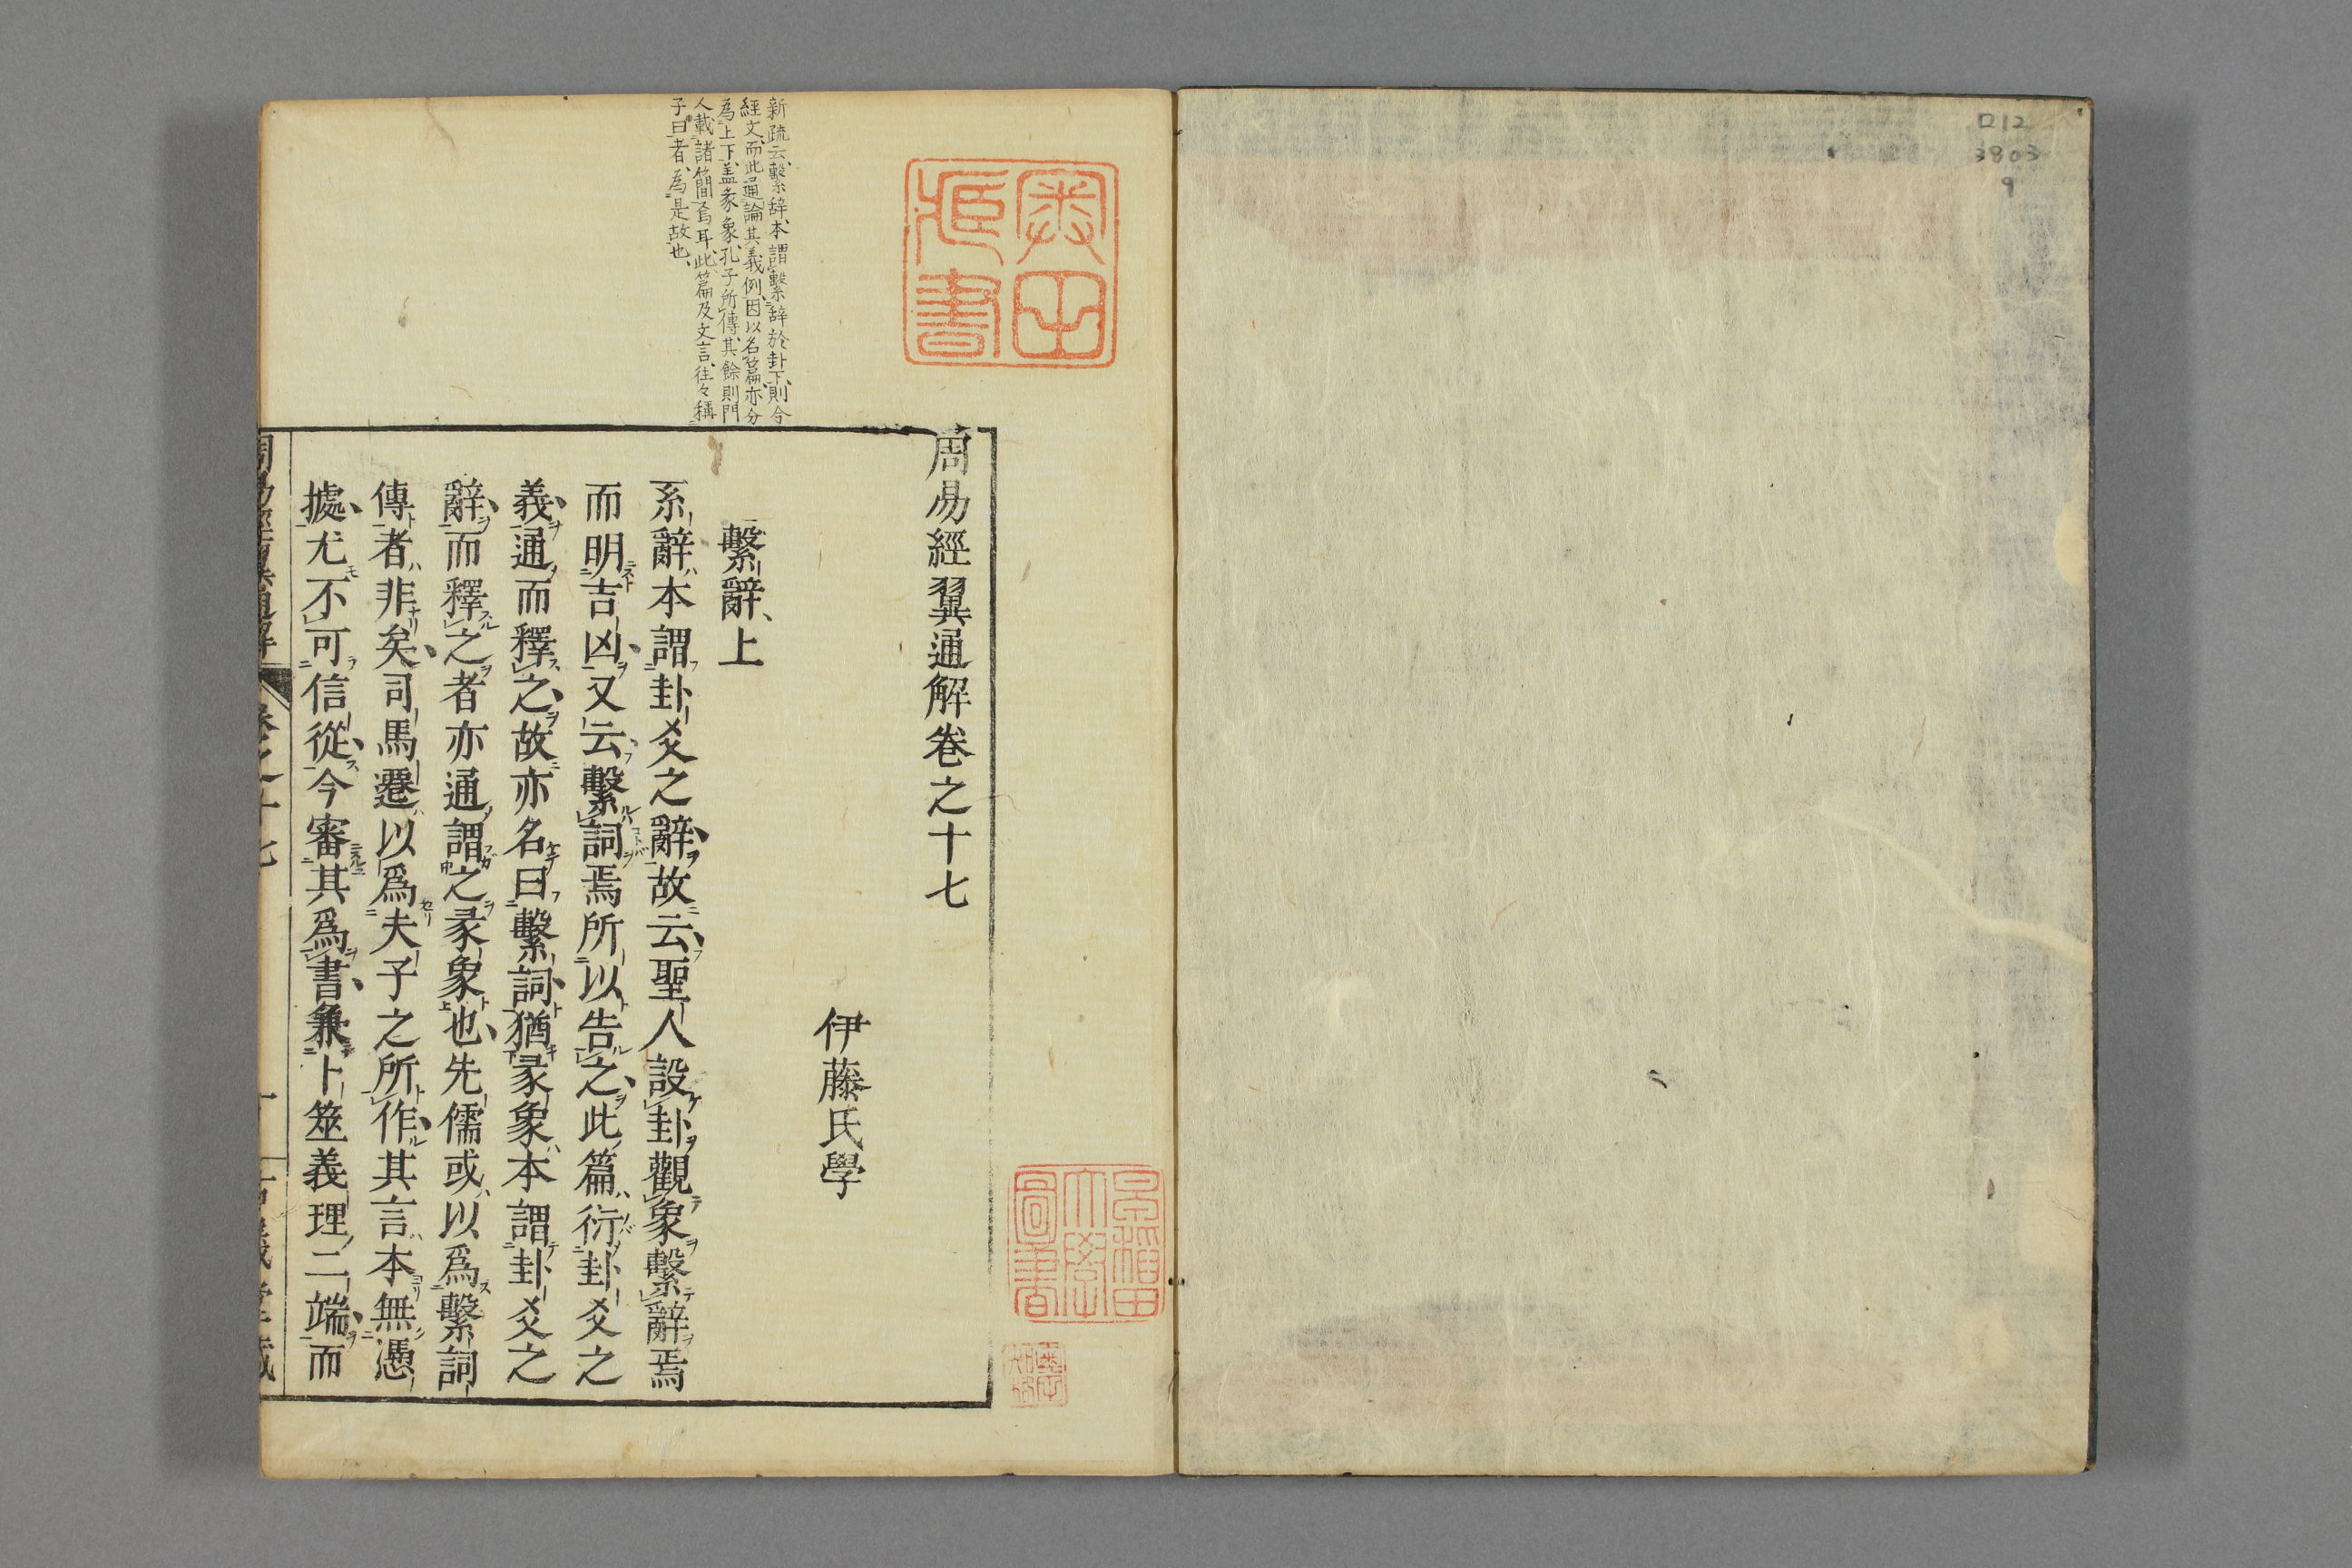 ロ12
3803
9
新疏云、繫辞、本謂繫辞於卦下、則今
經文、而此通論其義例、因以名篇、亦分
為上下、盖彖象、孔子所傳、其餘則門
人載諸簡焉耳、此篇及文言、往々稱
子曰者、為是故也、
周易經翼通解卷之十七
伊藤氏學
繫辭、上
系辭本謂卦爻之辭、故云、聖人設卦觀象繫辭焉
而明吉凶、又云繫詞焉所以告之、此篇衍卦爻之
義、通而釋之、故亦名曰繫詞、猶彖象本謂卦爻之
辭、而釋之者亦通謂之彖象也、先儒或以爲繫詞
傳者非矣、司馬遷以爲夫子之所作、其言本無憑
據、尤不可信從、今審其爲書、兼卜筮義理二端、而
奧田
藏書
早稲田
大學
圖書